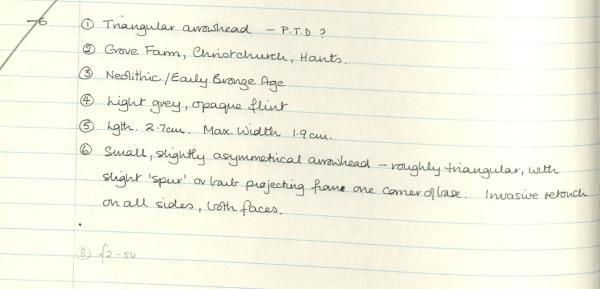 76
① Triangular arrowhead - P.T.D ?
② Grove Farm, Christchurch, Hants.
③ Neolithic/Early Bronze Age
④ Light grey, opaque flint
⑤ Lgth. 2.7cm. Max. Width 1.9cm.
⑥ Small, slightly asymmetrical arrowhead - roughly triangular, with
slight 'spur' or barb projecting from one corner of base. Invasive retouch
on all sides, both faces.
⑧ £2-50